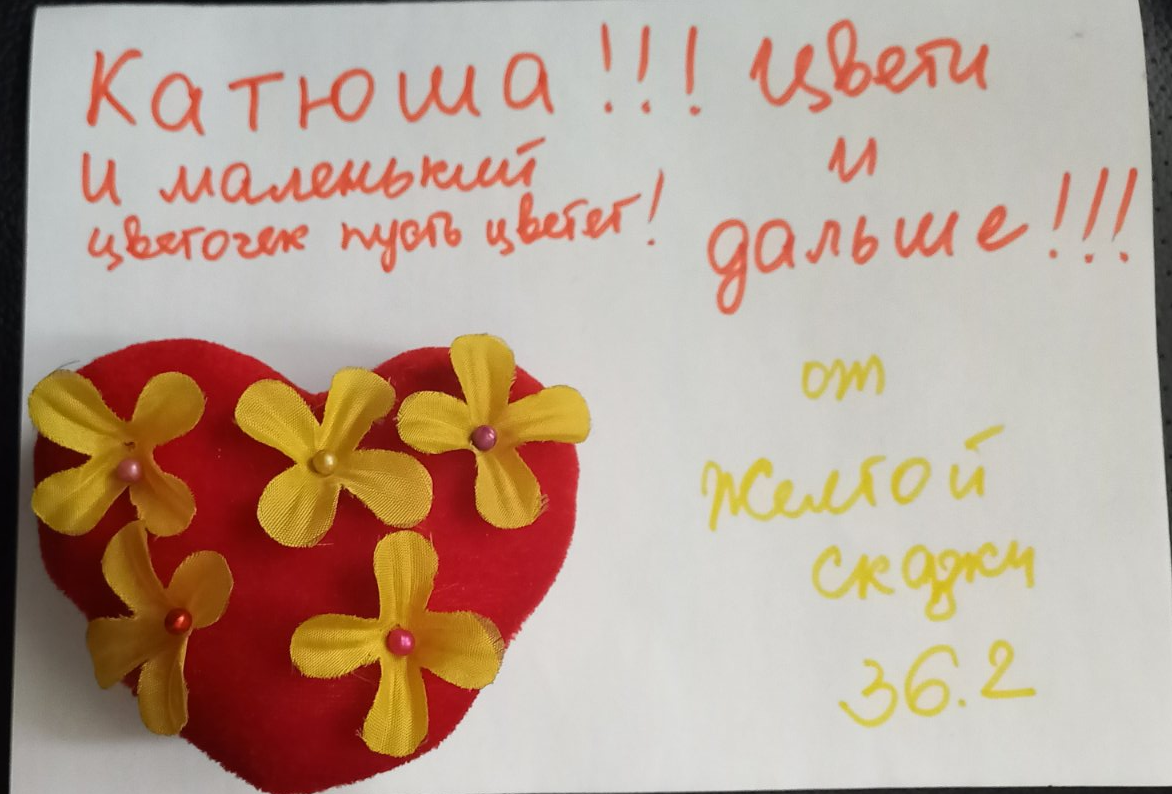 Катюша!!! Цвети
и
дальше!!!
и маленький
цветочек пусть цветет!
от
Желтой
скажи
36.2